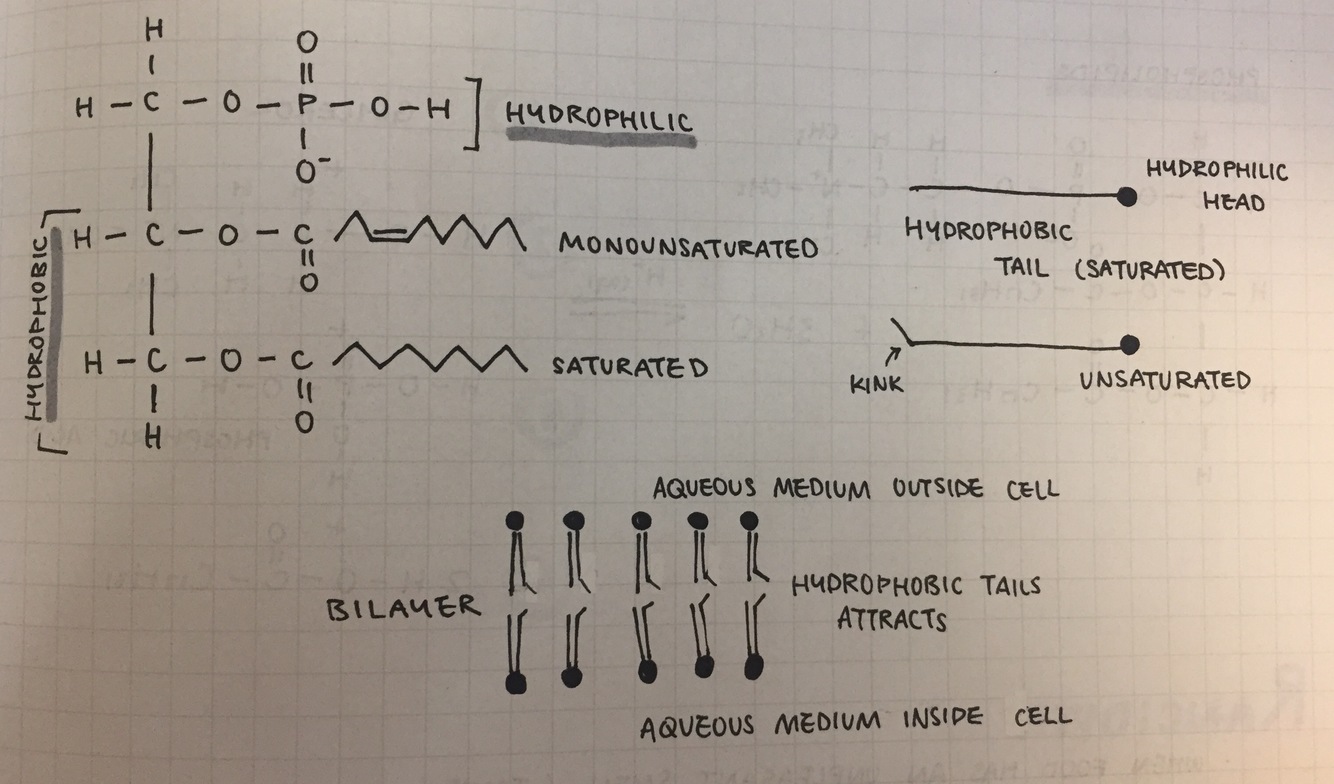 H
O
H – C – O – P – O – H ] HYDROPHILIC
O⁻
HYDROPHOBIC
H – C – O – C MONOUNSATURATED
O
H – C – O – C SATURATED
O
H
HYDROPHILIC
HEAD
HYDROPHOBIC
TAIL (SATURATED)
KINK
UNSATURATED
AQUEOUS MEDIUM OUTSIDE CELL
BILAYER
HYDROPHOBIC TAILS
ATTRACTS
AQUEOUS MEDIUM INSIDE CELL